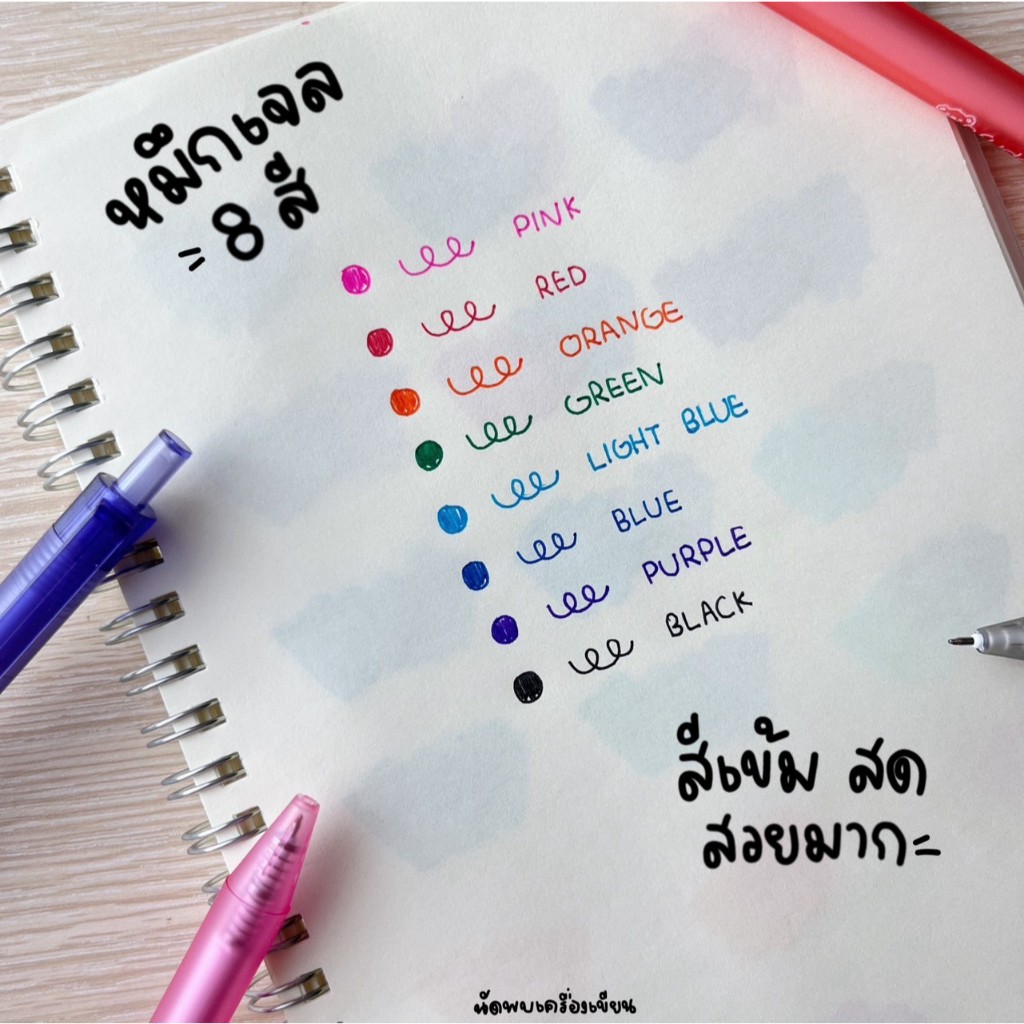 หมึกเจล
= 8 สี
PINK
RED
ORANGE
GREEN
LIGHT BLUE
BLUE
PURPLE
BLACK
สีเข้ม สด
สวยมาก=
นัดพบเครื่องเขียน